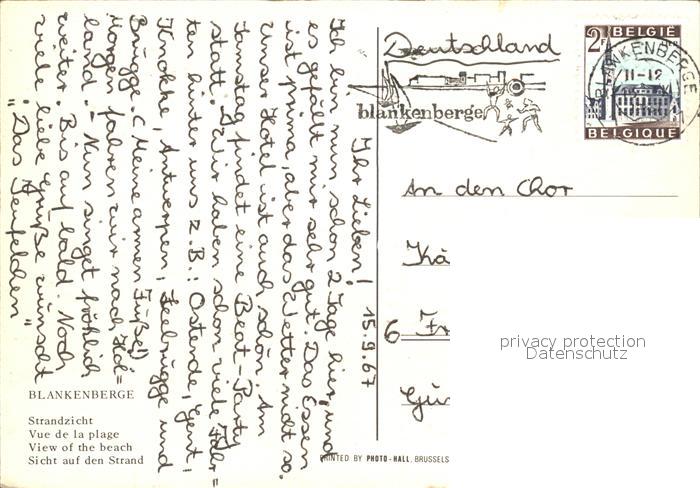 Ihr Lieben! 15.9.67
Ich bin nun schon 2 Tage hier, und
es gefällt mir sehr gut. Das Essen
ist prima, aber das Wetter nicht so.
Unser Hotel ist auch schön. Am
Samstag findet eine Beat-Party
statt. Wir haben schon viele Fahr=
ten hinter uns z.B.: Ostende, Gent,
Knokke, Antwerpen, Seebrügge und
Brügge. (Meine armen Füße!)
Morgen fahren wir nach Hol=
land. - Nun singet fröhlich
weiter. Bis auf bald. Noch
viele liebe Grüße wünscht
"Das Teufelchen"
Deutschland
blankenberge
2F BELGIË
BLANKENBERGE
11-12
BELGIQUE
An den Chor
Kä
6 Fr
Gü
privacy protection
Datenschutz
BLANKENBERGE
Strandzicht
Vue de la plage
View of the beach
Sicht auf den Strand
PRINTED BY PHOTO-HALL, BRUSSELS